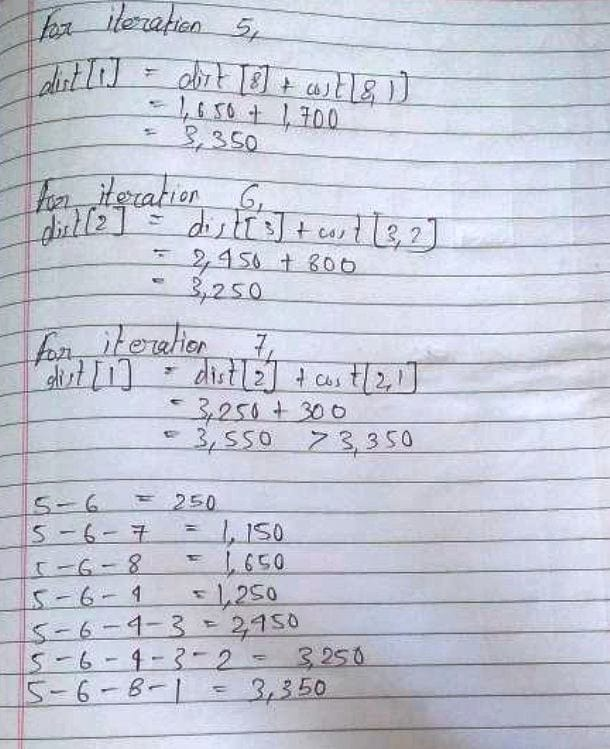 For iteration 5,
dist[1] = dist [8] + cost[8,1]
= 1,650 + 1,700
= 3,350
For iteration 6,
dist[2] = dist[3] + cost [3,2]
= 2,450 + 800
= 3,250
For iteration 7,
dist[1] = dist[2] + cost[2,1]
= 3,250 + 300
= 3,550 > 3,350
5 - 6 = 250
5 - 6 - 7 = 1,150
5 - 6 - 8 = 1,650
5 - 6 - 4 = 1,250
5 - 6 - 4 - 3 = 2,450
5 - 6 - 4 - 3 - 2 = 3,250
5 - 6 - 8 - 1 = 3,350